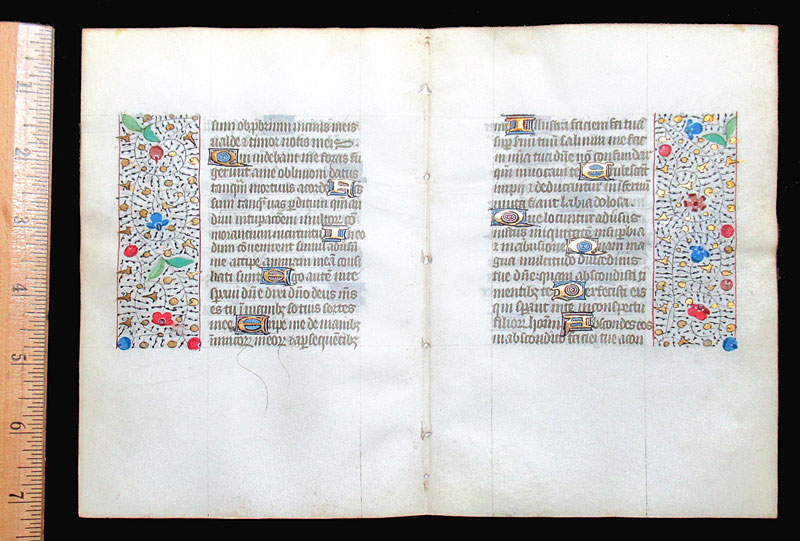 sum obprbrium vicinis meis
valde et timor notis mei
Qui videbant me foras fu
gerunt a me oblivioni datus
tanqm mortuus a corde F
sum tanqm vas pditum qm au
divi vituperacoem multor com
morantium in circuitu In eo
dum convenirent simul adusum
me accipe animam mea consi
liati sunt Ego aute in te
speravi dne dixi dns deus ms
es tu in manibz tuis sortes
mee Eripe me de manibz
inimicor meor et a psequetibz
Illustra faciem tua
sup suu tuu salvum me fac
in mia tua dne no confundar
qm invocavi te Erubescat
impii et deducantur in infernu
muta fiant labia dolosa
Que locuntur adusus
iustu iniquitate in supbia
et in abusione Quam ma
gna multitudo dulcedinis
tue dne quam abscondisti ti
mentibz te Perfecisti eis
qui sperant in te in conspectu
filior hoim Abscondes eos
in abscondito faciei tue a con
1
2
4
5
6
7